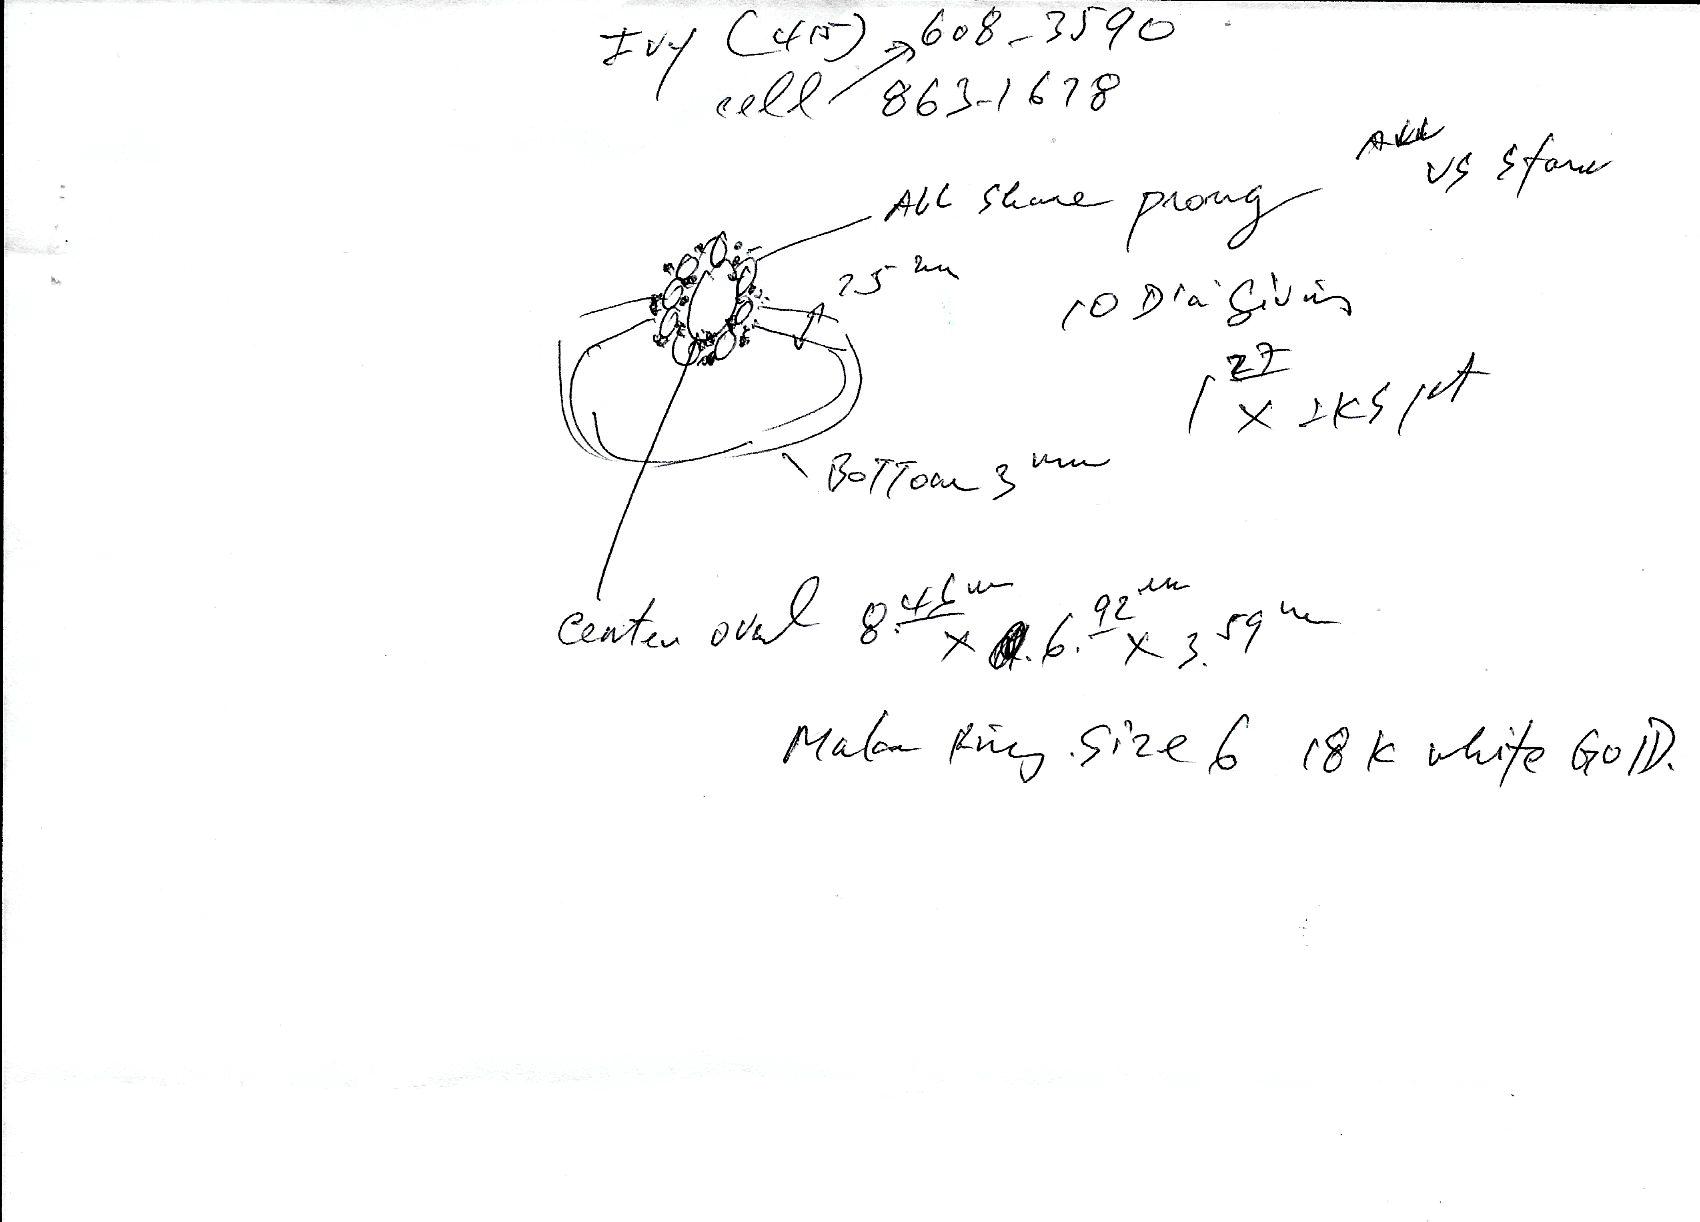 Ivy (415) 608-3590
cell 863-1678
All
VS Stone
ALL Share prong
25 mm
10 Dia Giving
1 27 X
BOTTOM 3 mm
Center oval 8.46 mm X 6.92 mm X 3.59 mm
Ring Size 6 18K white GOLD.